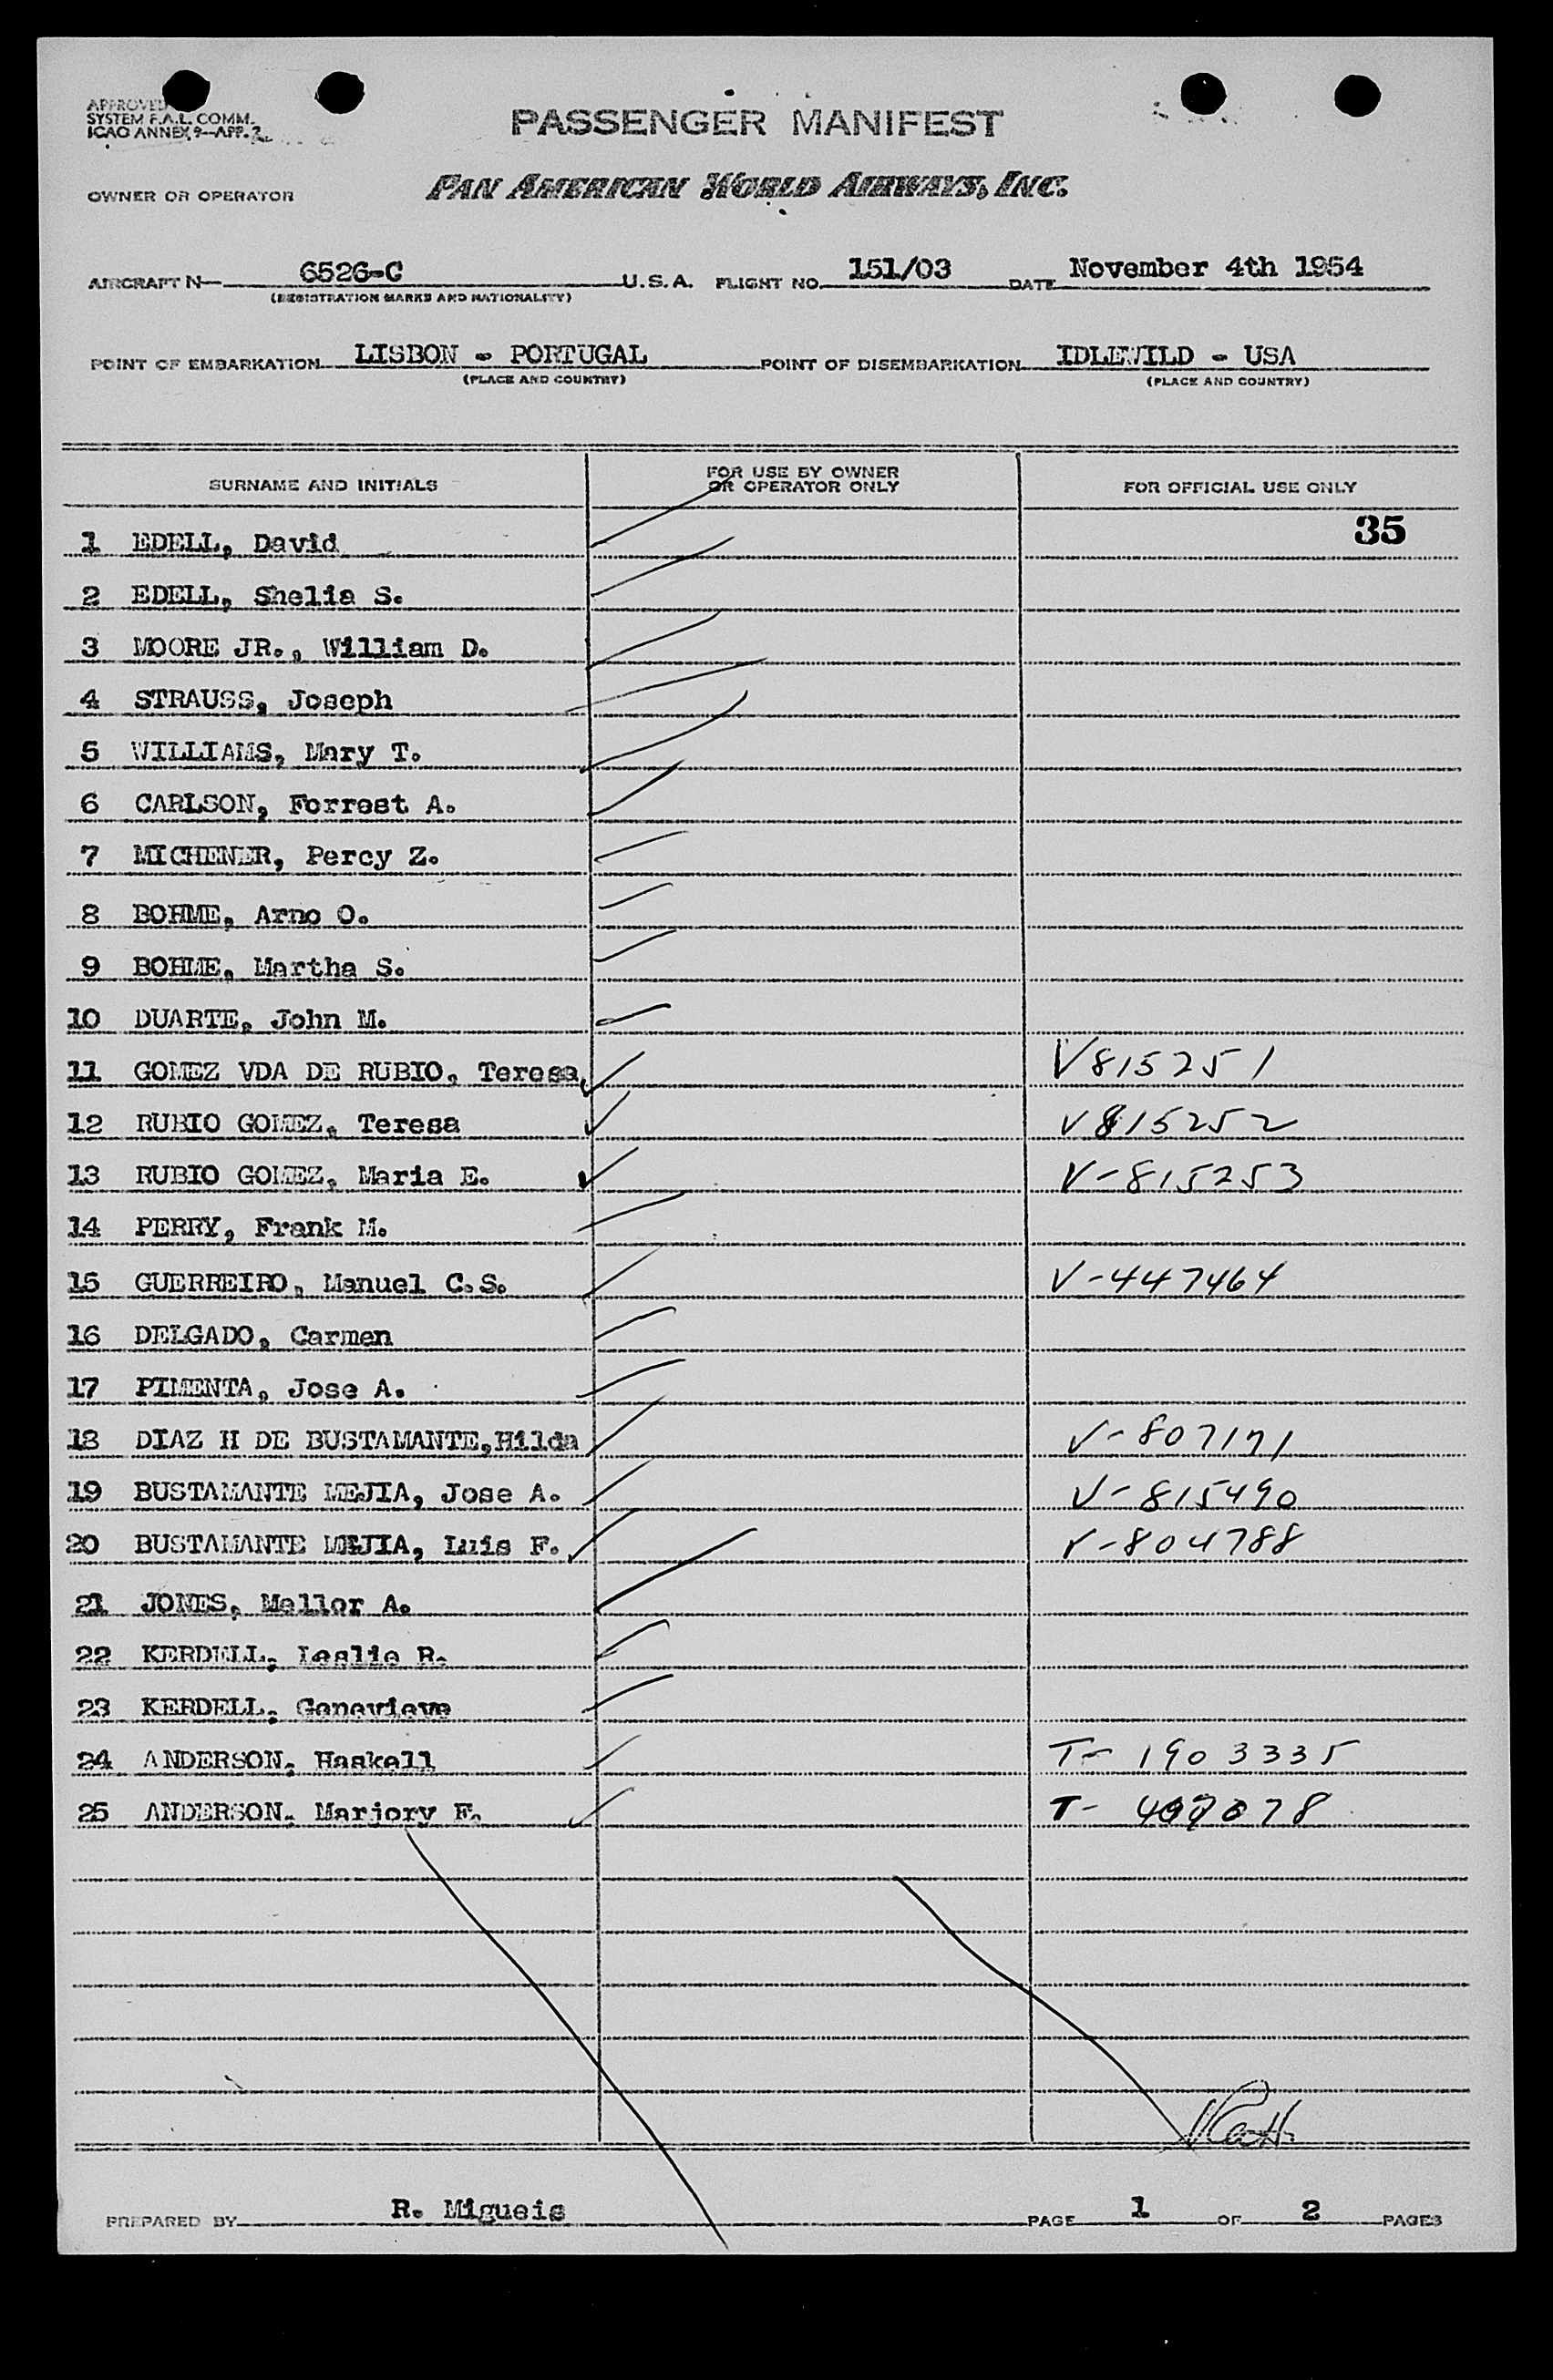 APPROVED
SYSTEM F.A.L. COMM.
ICAO ANNEX 9-APP. 2
PASSENGER MANIFEST
OWNER OR OPERATOR PAN AMERICAN WORLD AIRWAYS, INC.
AIRCRAFT N 6526-C U.S.A. FLIGHT NO. 151/03 DATE November 4th 1954
(REGISTRATION MARKS AND NATIONALITY)
POINT OF EMBARKATION LISBON - PORTUGAL POINT OF DISEMBARKATION IDLEWILD - USA
(PLACE AND COUNTRY) (PLACE AND COUNTRY)
SURNAME AND INITIALS FOR USE BY OWNER OR OPERATOR ONLY FOR OFFICIAL USE ONLY
35
1 EDELL, David
2 EDELL, Shelia S.
3 MOORE JR., William D.
4 STRAUSS, Joseph
5 WILLIAMS, Mary T.
6 CARLSON, Forrest A.
7 MICHENER, Percy Z.
8 BOHME, Arno O.
9 BOHME, Martha S.
10 DUARTE, John M.
11 GOMEZ VDA DE RUBIO, Teresa V815251
12 RUBIO GOMEZ, Teresa V815252
13 RUBIO GOMEZ, Maria E. V-815253
14 PERRY, Frank M.
15 GUERREIRO, Manuel C.S. V-447464
16 DELGADO, Carmen
17 PIMENTA, Jose A.
18 DIAZ H DE BUSTAMANTE,Hilda V-807171
19 BUSTAMANTE MEJIA, Jose A. V-815490
20 BUSTAMANTE MEJIA, Luis F. V-804788
21 JONES, Mellor A.
22 KERDELL, Leslie R.
23 KERDELL, Genevieve
24 ANDERSON, Haskell T- 1903335
25 ANDERSON, Marjory F. T-
PREPARED BY R. Migueis PAGE 1 OF 2 PAGES